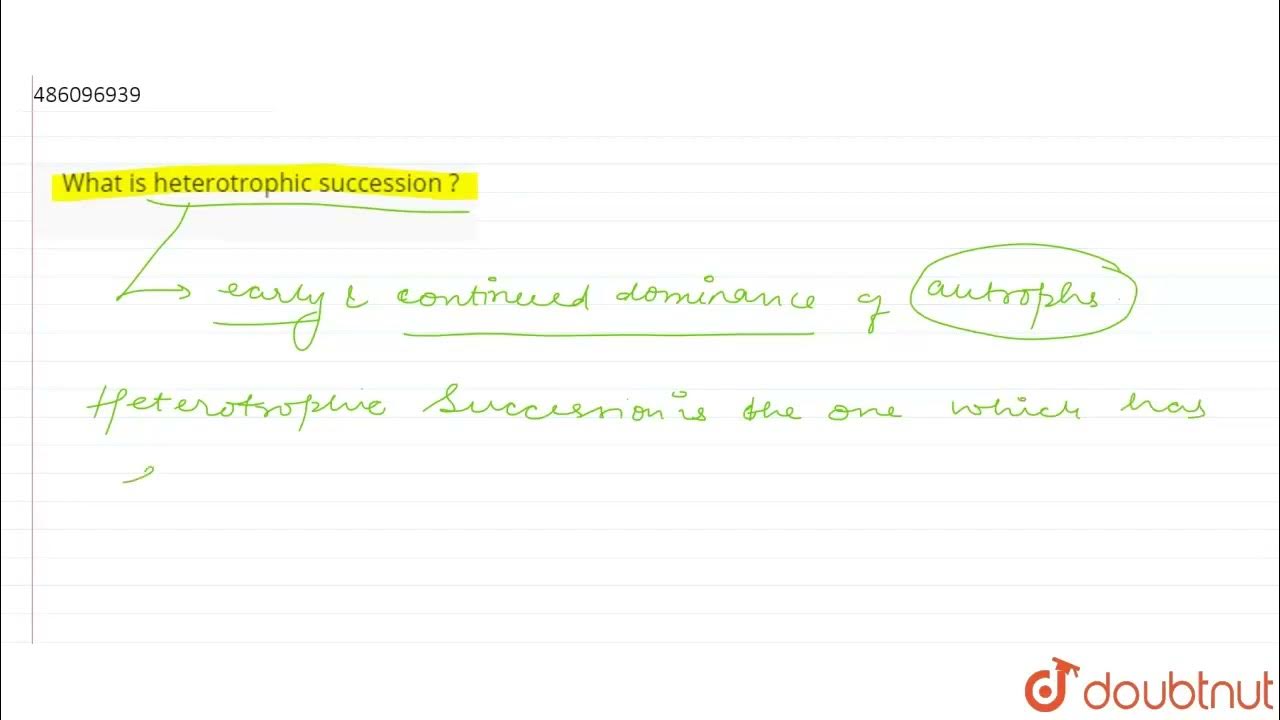 486096939
What is heterotrophic succession ?
early & continued dominance of autrophs
Heterotrophic Succession is the one which has
doubtnut